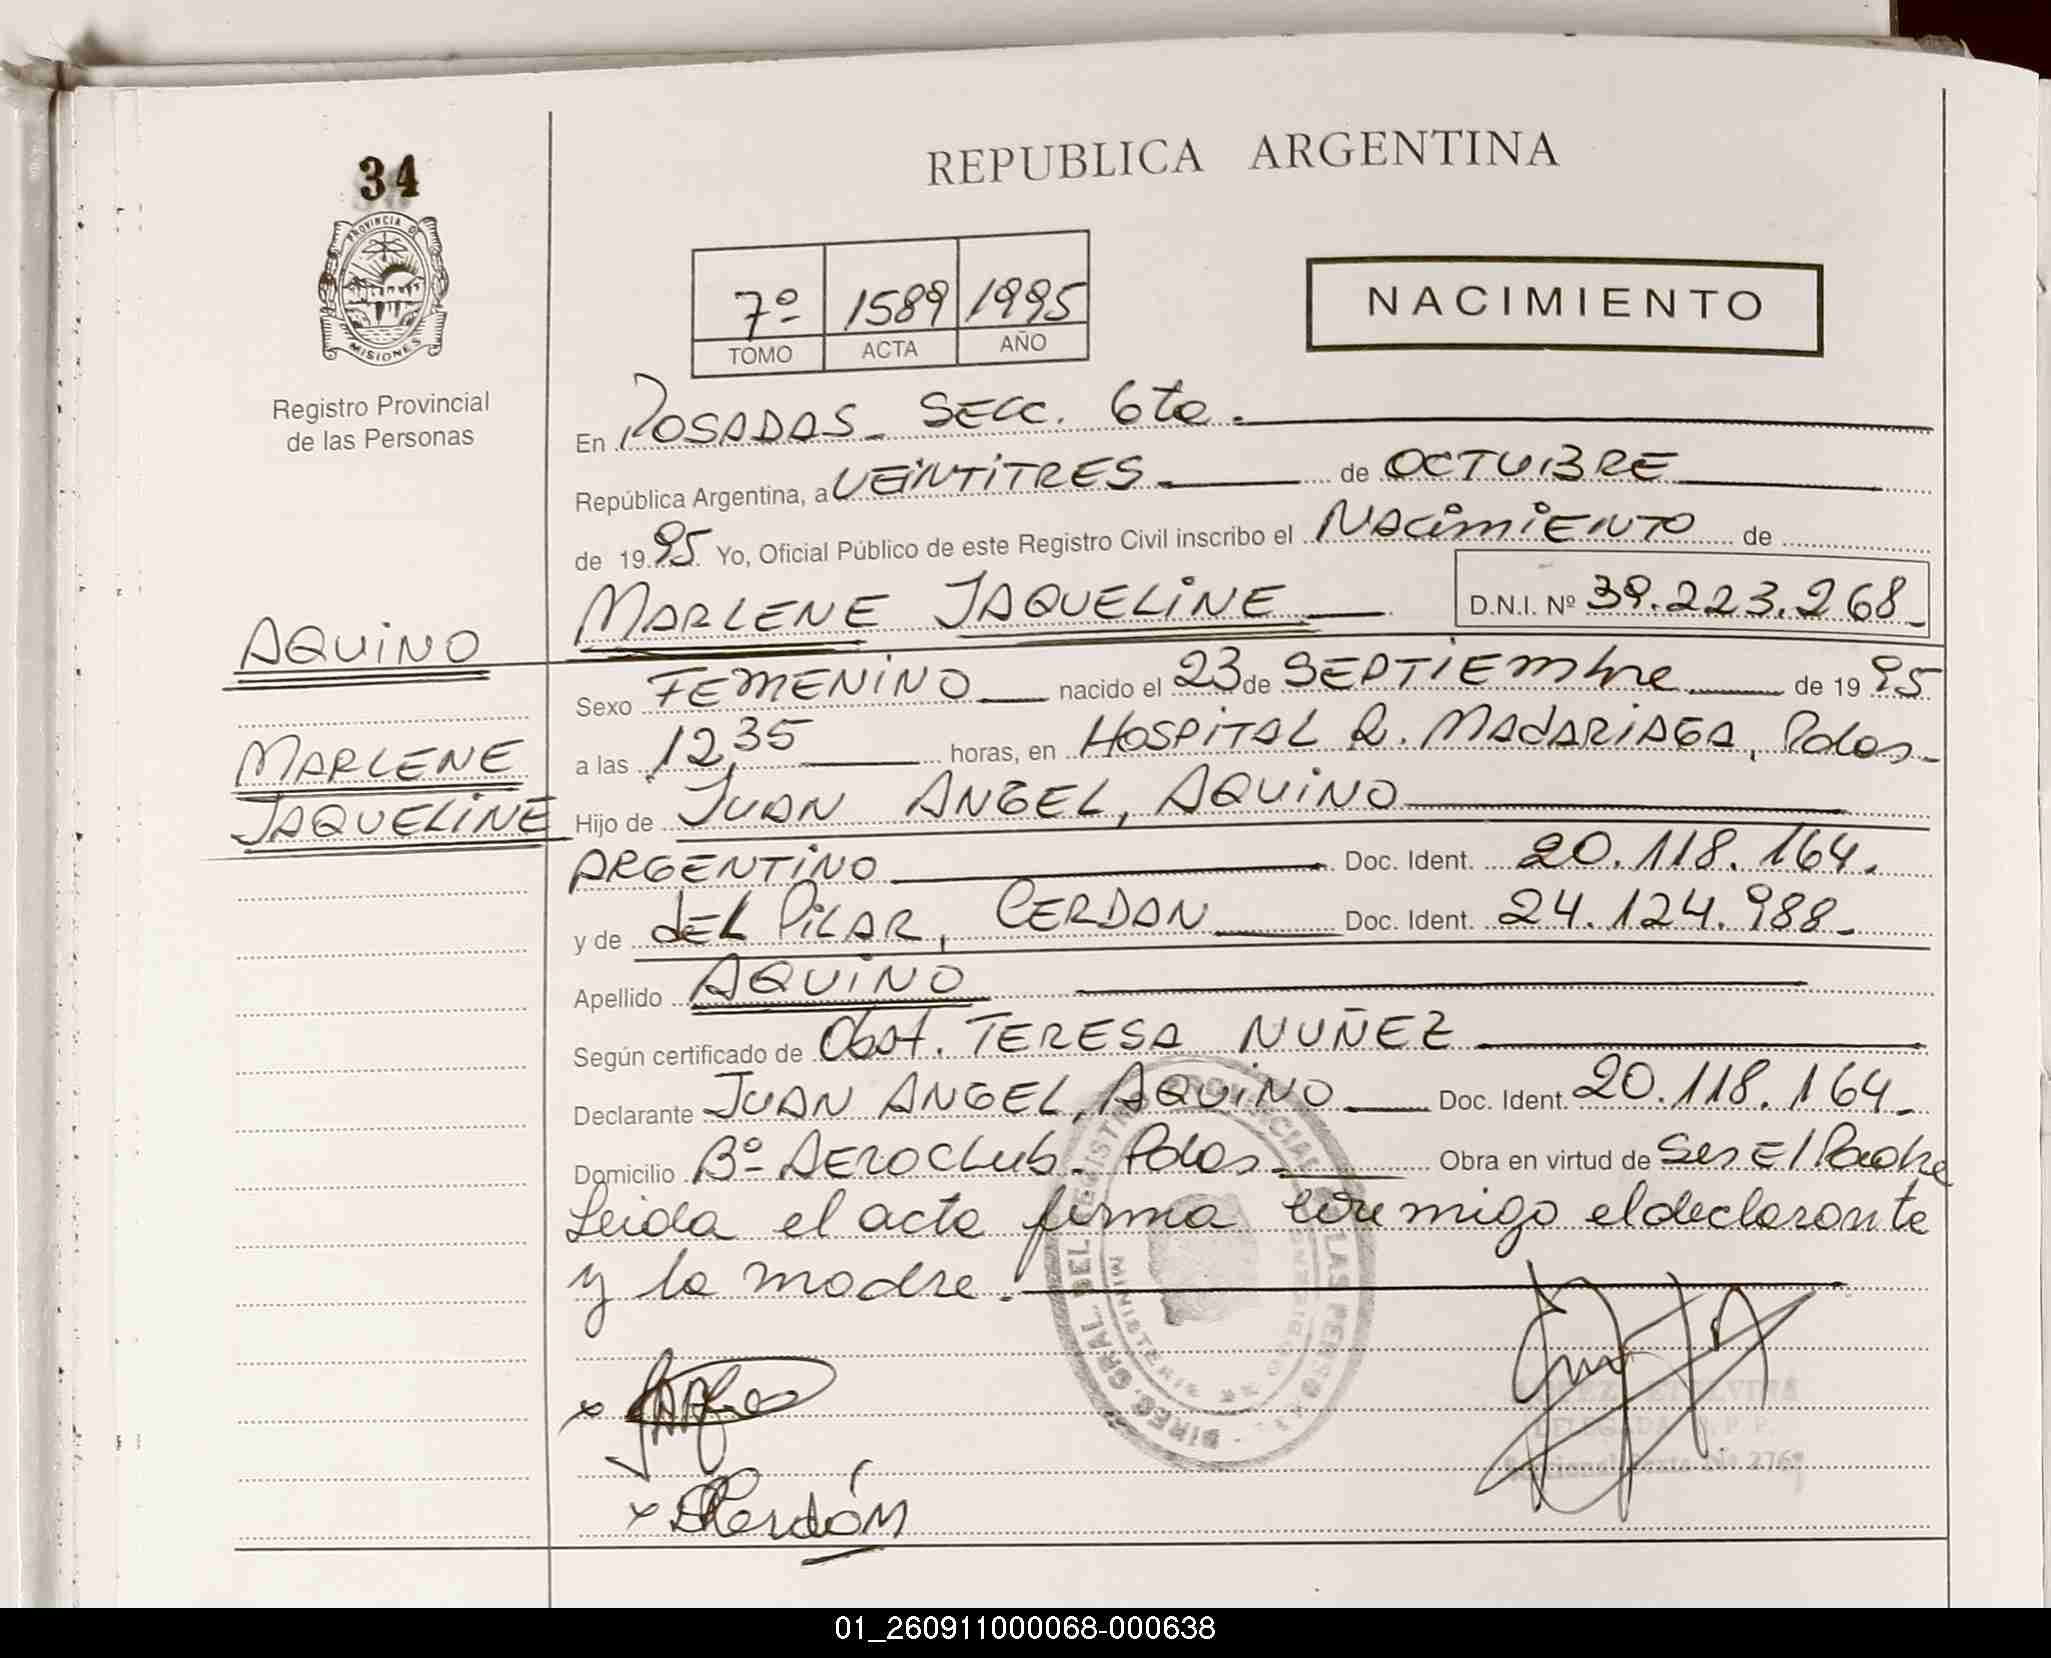 34
PROVINCIA D
MISIONES
Registro Provincial
de las Personas
REPUBLICA ARGENTINA
7º 1589 1995
TOMO ACTA AÑO
NACIMIENTO
En POSADAS - SECC. 6ta.
República Argentina, a VEINTITRES de OCTUBRE
de 1995 Yo, Oficial Público de este Registro Civil inscribo el NACIMIENTO de
MARLENE JAQUELINE D.N.I. Nº 39.223.268
AQUINO
Sexo FEMENINO nacido el 23 de SEPTIEMbre de 1995
MARLENE
a las 12,35 horas, en HOSPITAL R. MADARIAGA, Pdas
JAQUELINE
Hijo de JUAN ANGEL, AQUINO
ARGENTINO Doc. Ident. 20.118.164.
y de dEL PILAR, CERDAN Doc. Ident. 24.124.988
Apellido AQUINO
Según certificado de Obst. TERESA NUÑEZ
Declarante JUAN ANGEL, AQUINO Doc. Ident. 20.118.164
Domicilio Bº AEROCLub - Pdas Obra en virtud de Ser El Padre
Leida el acta firma conmigo el declarante
y la madre.
Cerdán
01_260911000068-000638